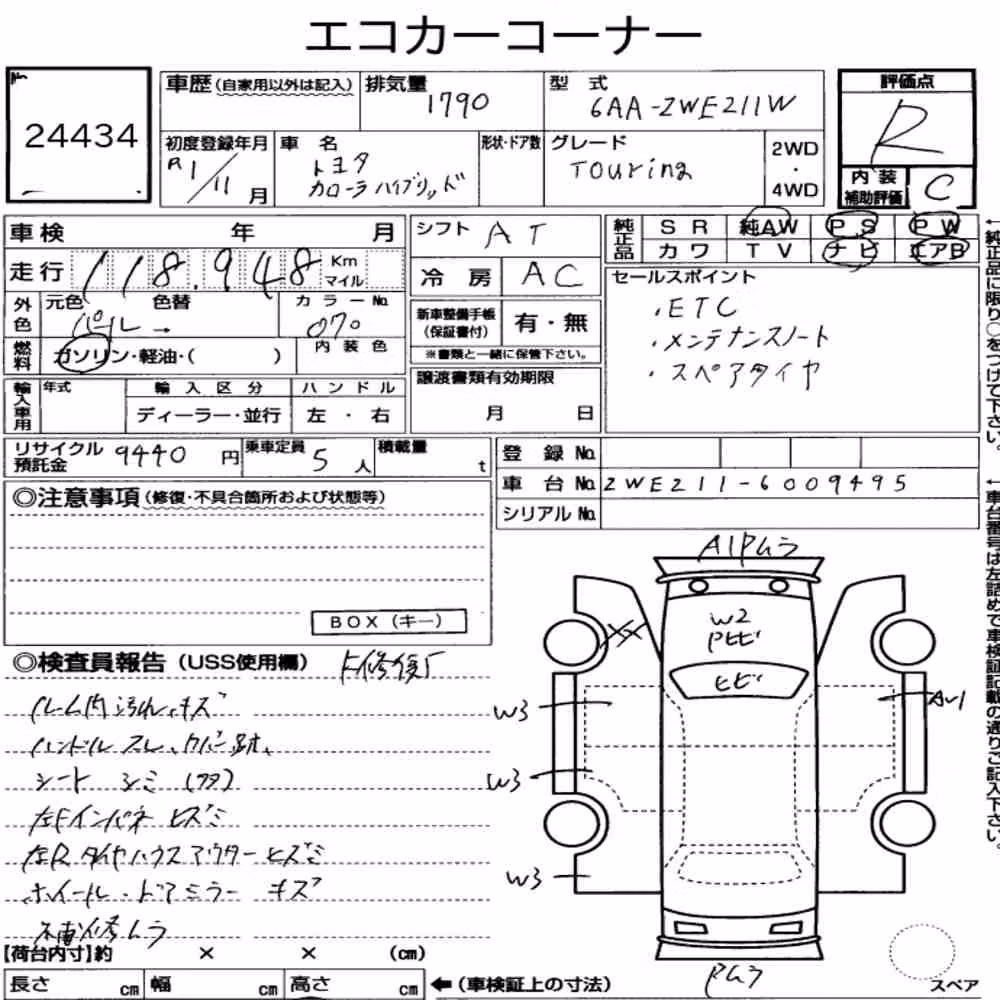 エコカーコーナー
No.
24434
車歴(自家用以外は記入)
排気量
1790
型式
6AA-ZWE211W
評価点
R
初度登録年月
R1/11月
車名
トヨタ
カローラハイブリッド
形状・ドア数
グレード
Touring
2WD
・
4WD
内装
補助評価
C
車検 年 月
シフト AT
純正品
SR 純AW PS PW
カワ TV ナビ エアB
走行 118,948 Km
マイル
冷房 AC
セールスポイント
・ETC
・メンテナンスノート
・スペアタイヤ
外色
元色 色替
パール→
カラーNo.
070
内装色
新車整備手帳
(保証書付)
有・無
※書類と一緒に保管下さい。
燃料
ガソリン・軽油・( )
譲渡書類有効期限
月 日
輸入車用
年式
輸入区分
ディーラー・並行
ハンドル
左・右
リサイクル
預託金
9440円
乗車定員
5人
積載量
t
登録No.
車台No. ZWE211-6009495
シリアルNo.
◎注意事項(修復・不具合箇所および状態等)
BOX(キー)
◎検査員報告(USS使用欄)
ルーム内汚れ、キズ
ハンドルスレ、カバー跡、
シートシミ(フタ)
左Fインパネヒズミ
左Rタイヤハウスアウターヒズミ
ホイール・ドアミラーキズ
補修ムラ
A1Pムラ
W2
Pヒビ
XX
ヒビ
W3
W3
W3
Pムラ
スペア
【荷台内寸】約 × × (cm)
長さ cm 幅 cm 高さ cm
←(車検証上の寸法)
←純正品に限り○をつけて下さい。
←車台番号は左詰めで車検証記載の通りご記入下さい。